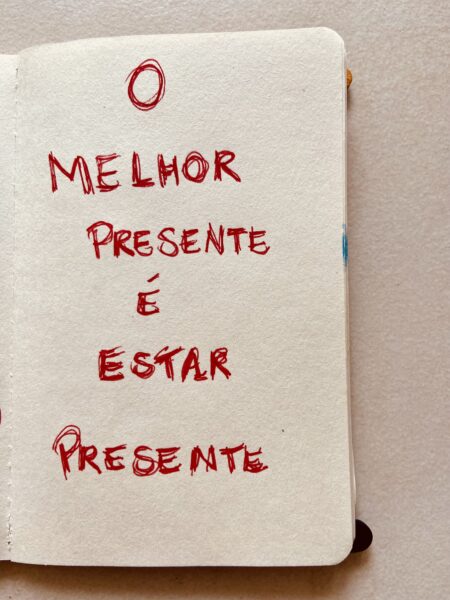 O
MELHOR
PRESENTE
É
ESTAR
PRESENTE